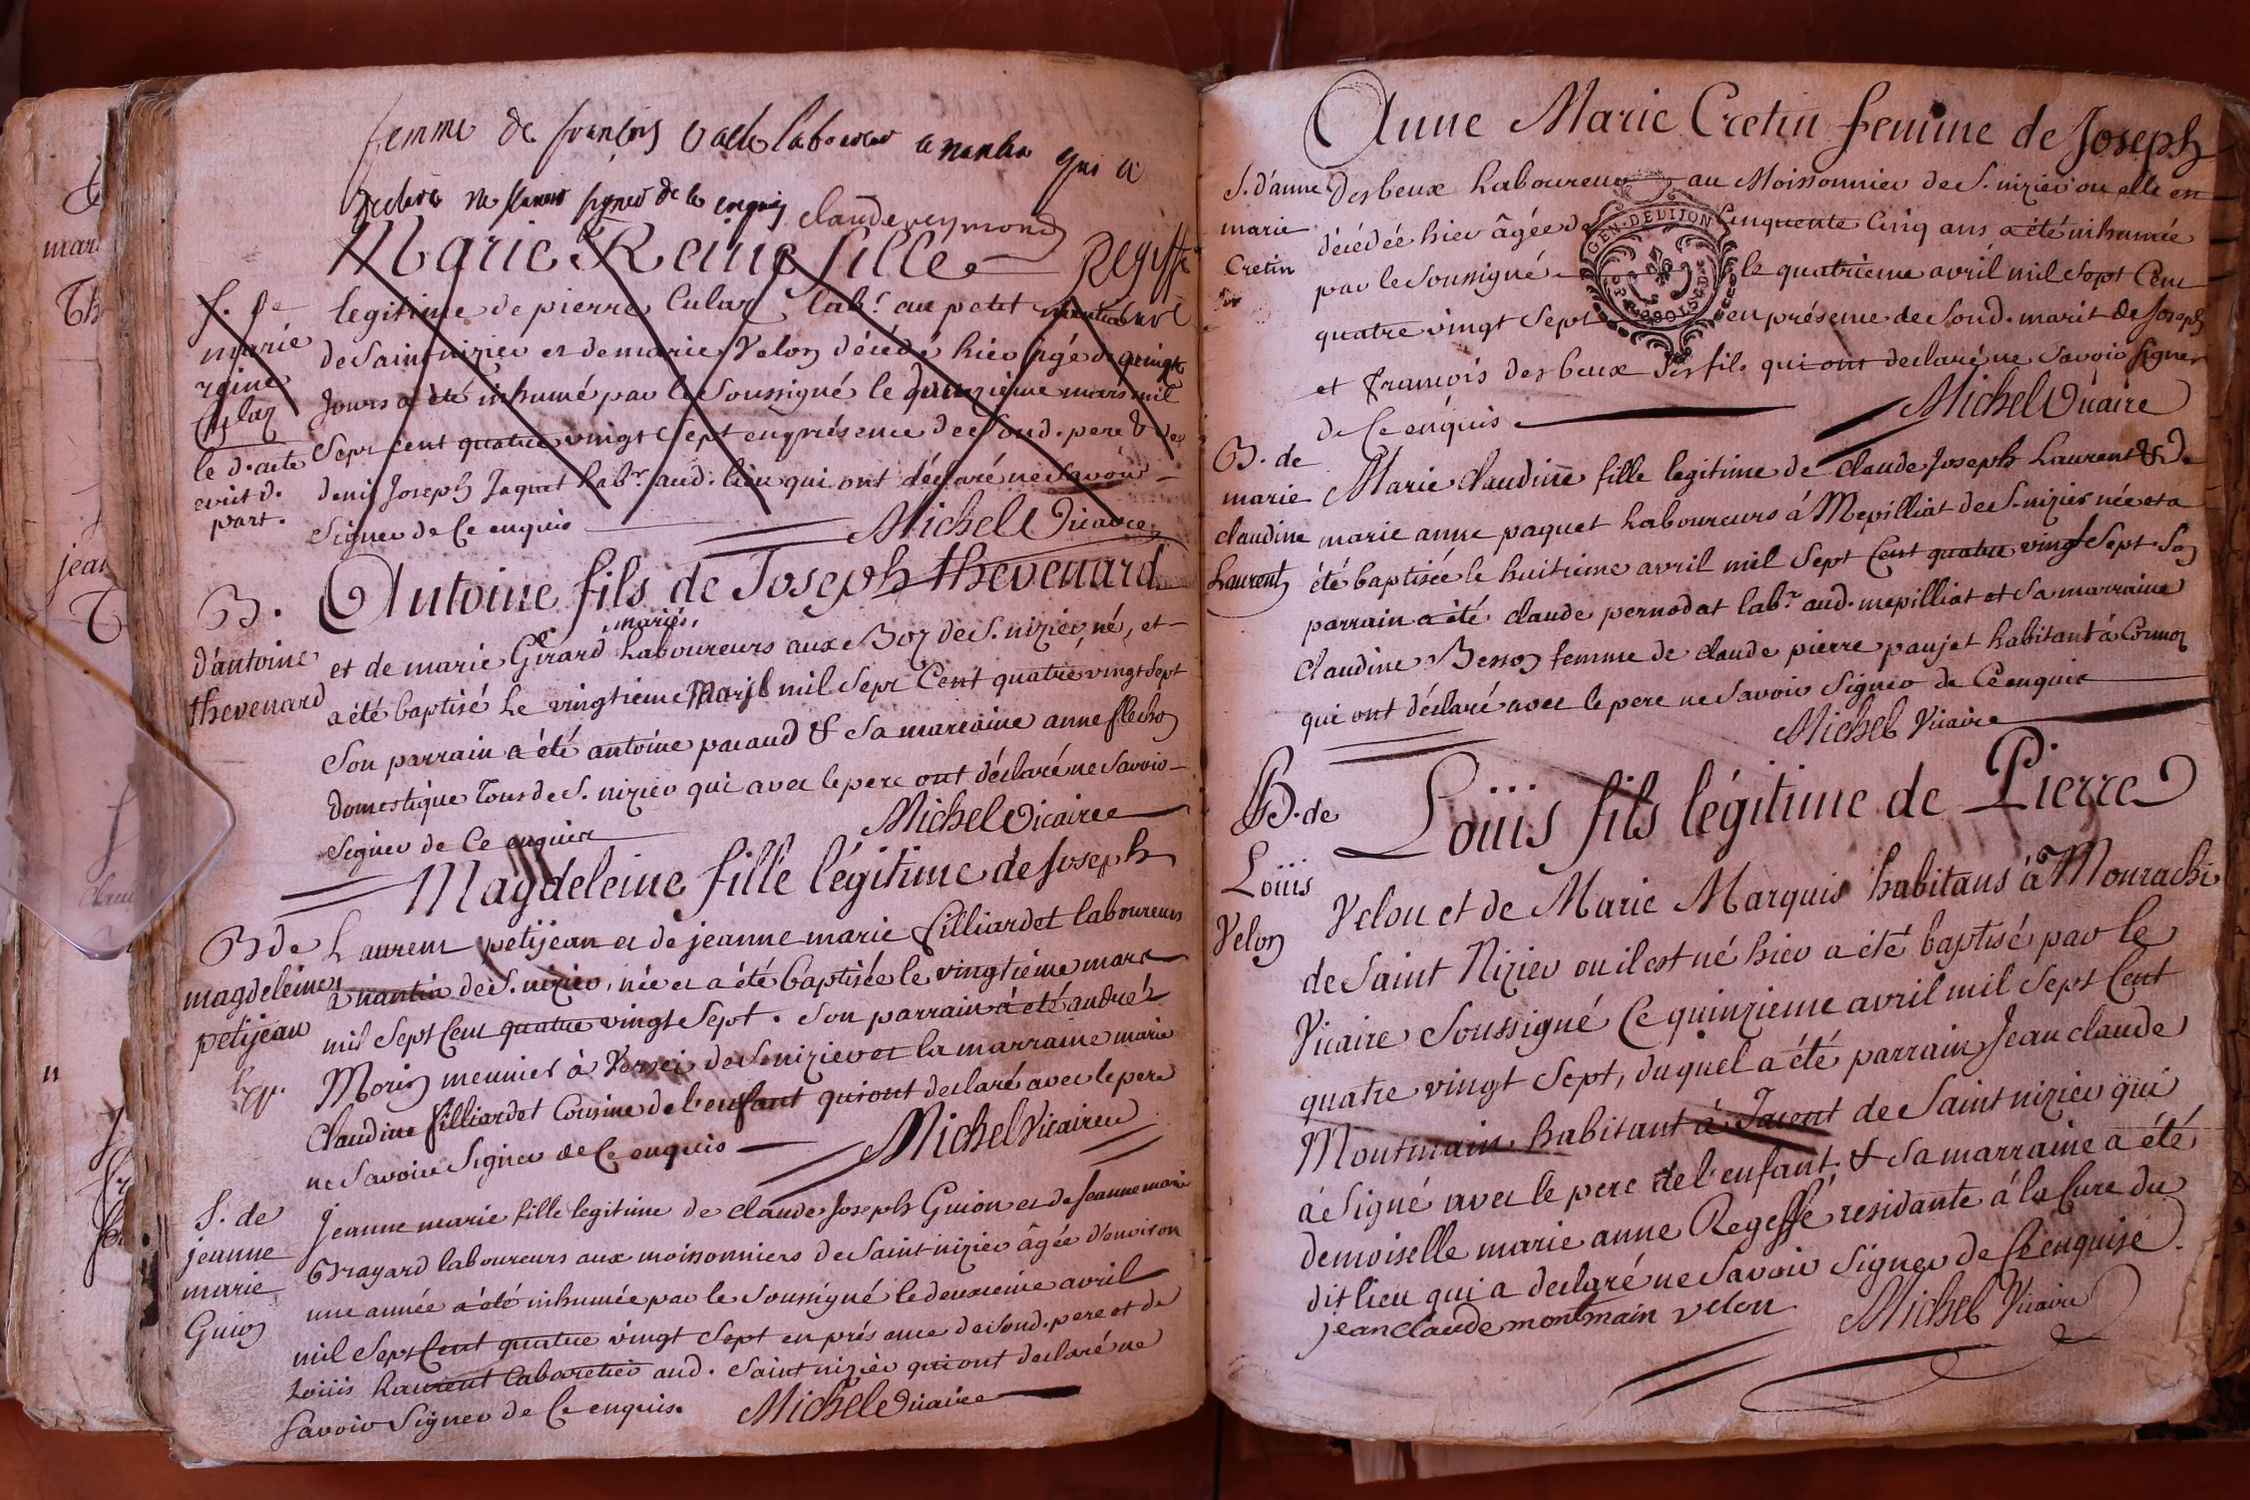 femme de françois laboureur a nantia qui a
declaré ne scavoir signer de ce enquis claude reymond
Marie Reine fille Regeffe
S. de
marie
reine
Culaz
le d. acte
ecrit d.
part.
legitime de pierre Culaz lab.r au petit
de Saint nizier et de marie Velon décédé hier âgé de quinze
Jours a été inhumé par le Soussigné le quinzieme mars mil
Sept cent quatre vingt Sept en présence de Sond. pere & de
denis Joseph Jaquet lab.r aud. lieu qui ont déclaré ne Savoir
Signer de Ce enquis Michel Vicaire
B.
d'antoine
thevenard
Antoine fils de Joseph thevenard
mariés
et de marie Girard Laboureurs aux Boz de S. nizier, né, et
a été baptisé Le vingtieme mars mil Sept Cent quatre vingt Sept
Son parrain a été antoine pacaud & Sa marraine anne flechon
domestique tous de S. nizier qui avec le pere ont déclaré ne Savoir
Signer de Ce enquis Michel Vicaire
Magdeleine fille légitime de Joseph
B de
magdeleine
petijean
Laurent petijean et de jeanne marie Cilliardet laboureurs
à nantia de S. nizier, née et a été baptisée le vingtième mars
mil Sept Cent quatre vingt Sept. Son parrain a été andré
Morin meunier à Versei de S. nizier et la marraine marie
Claudine filliardet Cousine de l'enfant qui ont declaré avec le pere
ne Savoir Signer de Ce enquis Michel Vicaire
S. de
jeanne
marie
Guion
Jeanne marie fille legitime de claude Joseph Guion et de Jeanne marie
Brayard laboureurs aux moissonniers de Saint nizier âgée d'environ
une année a été inhumée par le Soussigné le deuxieme avril
mil Sept Cent quatre vingt Sept en présence de Sond. pere et de
Loüis Laurent Cabaretier aud. Saint nizier qui ont declaré ne
Savoir Signer de Ce enquis. Michel Vicaire
Anne Marie Cretin femme de Joseph
S. d'anne
marie
Cretin
desbeux Laboureur au Moissonnier de S. nizier ou elle en
décédée hier âgée de Cinquente Cinq ans a été inhumée
GEN. DE DIJON
par le Soussigné le quatrieme avril mil Sept Cent
quatre vingt Sept en présence de Sond. marit de Joseph
et francois desbeux Ses fils qui ont declaré ne Savoir Signer
de Ce enquis Michel Vicaire
B. de
marie
claudine
Laurent
Marie claudine fille legitime de claude Joseph Laurent & de
marie anne paquet Laboureurs á Mepilliat de S. nizier née et a
été baptisée le huitieme avril mil Sept Cent quatre vingt Sept. Son
parrain a été claude pernodat lab.r aud. mepilliat et Sa marraine
claudine Besson femme de claude pierre paujet habitant à Cormoz
qui ont déclaré avec le pere ne Savoir Signer de Ce enquis
Michel Vicaire
B. de
Loüis
Velon
Loüis fils légitime de Pierre
Velon et de Marie Marquis habitans á Mourachi
de Saint Nizier ou il est né hier a été baptisé par le
Vicaire Soussigné Ce quinzieme avril mil Sept Cent
quatre vingt Sept, duquel a été parrain Jean claude
Montmain habitant à Tarent de Saint nizier qui
à Signé avec le pere de l'enfant & Sa marraine a été
demoiselle marie anne Regeffe residante á la Cure du
dit lieu qui a declaré ne Savoir Signer de Ce enquise.
jean claude montmain velon Michel Vicaire